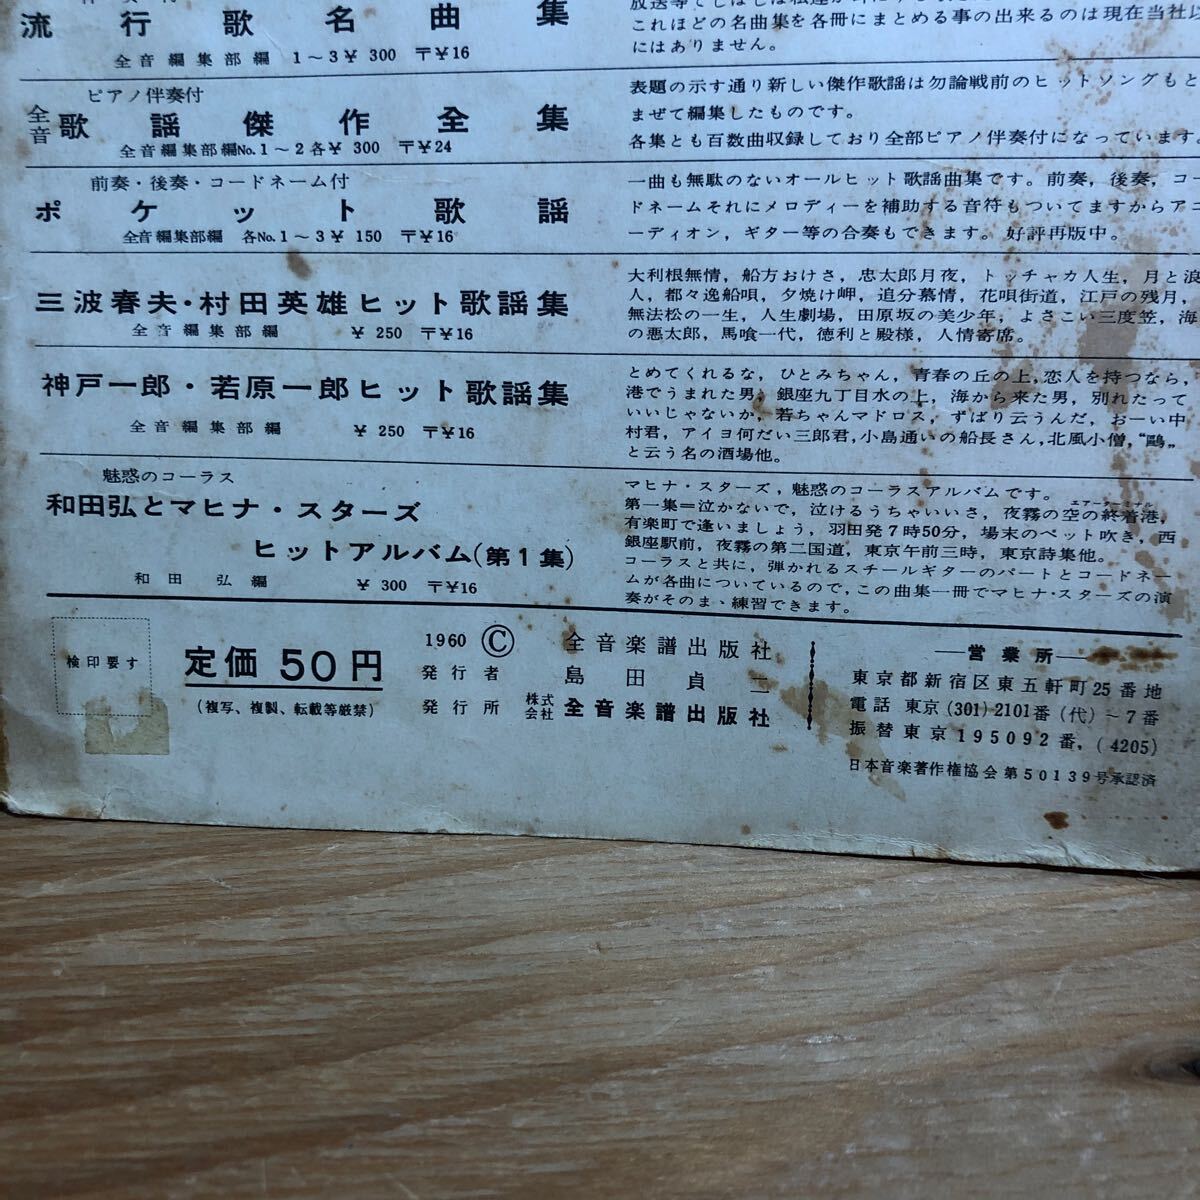 流行歌名曲集
全音編集部編 1〜3¥ 300 〒¥16
これほどの名曲集を各冊にまとめる事の出来るのは現在当社以
にはありません。
ピアノ伴奏付
全音 歌謡傑作全集
全音編集部編No.1〜2各¥ 300 〒¥24
表題の示す通り新しい傑作歌謡は勿論戦前のヒットソングもと
まぜて編集したものです。
各集とも百数曲収録しており全部ピアノ伴奏付になっています。
前奏・後奏・コードネーム付
ポケット歌謡
全音編集部編 各No.1〜3¥ 150 〒¥16
一曲も無駄のないオールヒット歌謡曲集です。前奏，後奏，コー
ドネームそれにメロディーを補助する音符もついてますからアコ
ーディオン，ギター等の合奏もできます。好評再版中。
三波春夫・村田英雄ヒット歌謡集
全音編集部編 ¥ 250 〒¥16
大利根無情，船方おけさ，忠太郎月夜，トッチャカ人生，月と浪
人，都々逸船唄，夕焼け岬，追分慕情，花唄街道，江戸の残月，
無法松の一生，人生劇場，田原坂の美少年，よさこい三度笠，海
の悪太郎，馬喰一代，徳利と殿様，人情寄席。
神戸一郎・若原一郎ヒット歌謡集
全音編集部編 ¥ 250 〒¥16
とめてくれるな，ひとみちゃん，青春の丘の上，恋人を持つなら，
港でうまれた男，銀座九丁目水の上，海から来た男，別れたって
いいじゃないか，若ちゃんマドロス，ずばり云うんだ，おーい中
村君，アイヨ何だい三郎君，小島通いの船長さん，北風小僧，“鴎„
と云う名の酒場他。
魅惑のコーラス
和田弘とマヒナ・スターズ
ヒットアルバム（第1集）
和田 弘編 ¥ 300 〒¥16
マヒナ・スターズ，魅惑のコーラスアルバムです。
第一集＝泣かないで，泣けるうちゃいいさ，夜霧の空の終着港，
有楽町で逢いましょう，羽田発7時50分，場末のペット吹き，西
銀座駅前，夜霧の第二国道，東京午前三時，東京詩集他。
コーラスと共に，弾かれるスチールギターのパートとコードネー
ムが各曲についているので，この曲集一冊でマヒナ・スターズの演
奏がそのまゝ練習できます。
検印要す
定価 50円
（複写、複製、転載等厳禁）
1960 Ⓒ 全音楽譜出版社
発行者 島田貞二
発行所 株式会社 全音楽譜出版社
―営業所―
東京都新宿区東五軒町25番地
電話 東京（301）2101番（代）〜7番
振替東京195092番，（4205）
日本音楽著作権協会第50139号承認済